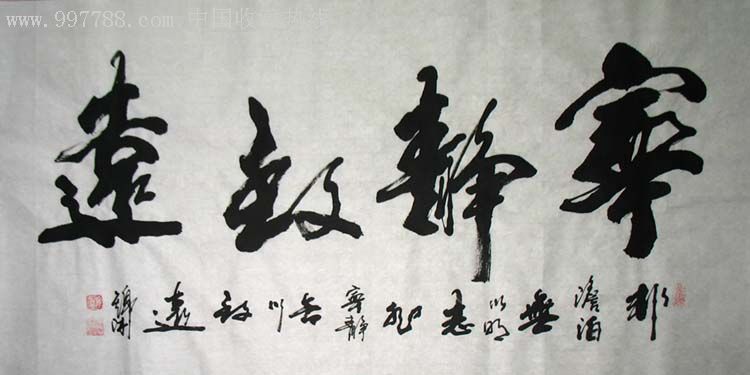 www.997788.com 中国收藏热线
寧靜致遠
非澹泊無以明志非寧靜無以致遠